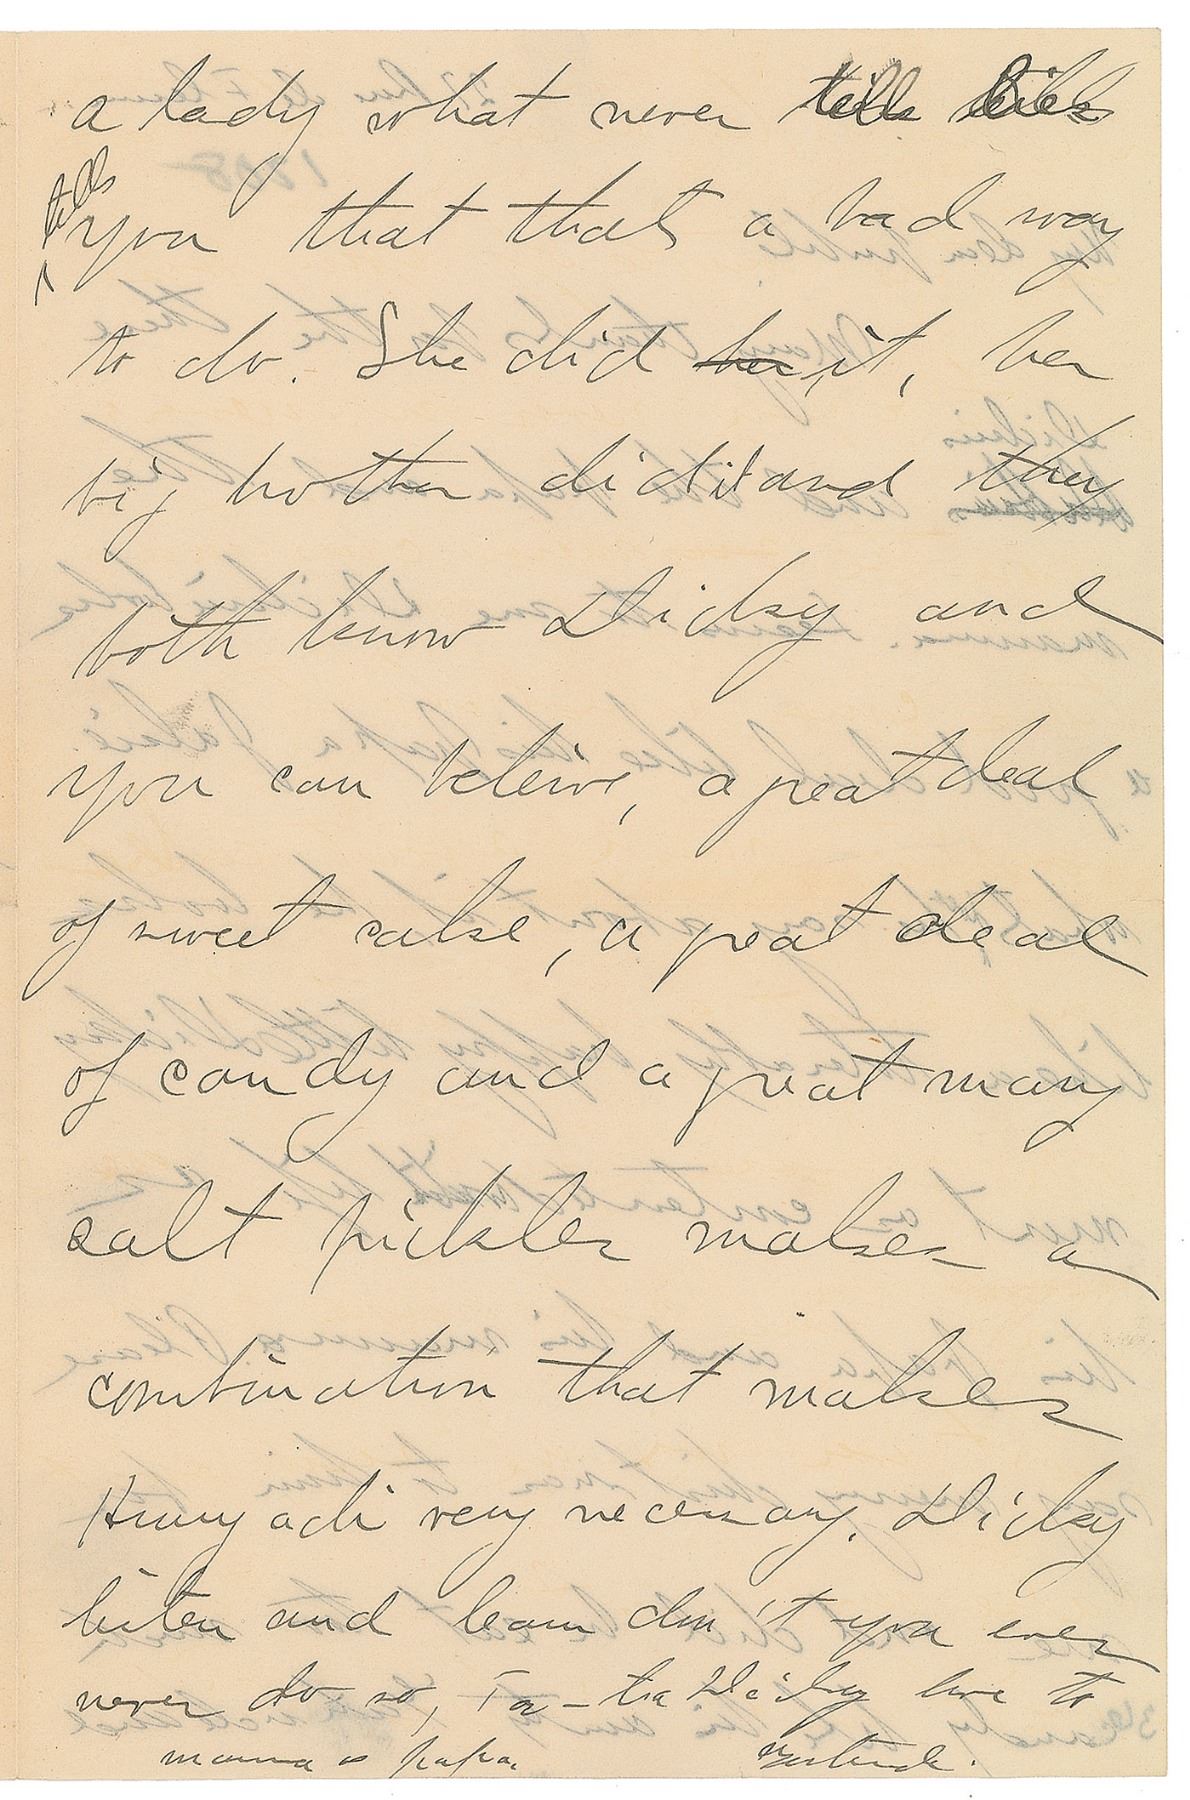 a lady what never tells lies
tells
you that thats a bad way
to do. She did her it, her
big brother did it and they
both know Dicky and
you can beleive, a great deal
of sweet cake, a great deal
of candy and a great many
salt pickles makes a
combination that makes
Hunyadi very necessary. Dicky
listen and learn don't you ever
never do so, Ta-ta Dicky love to
mamma & papa. Gertrude.